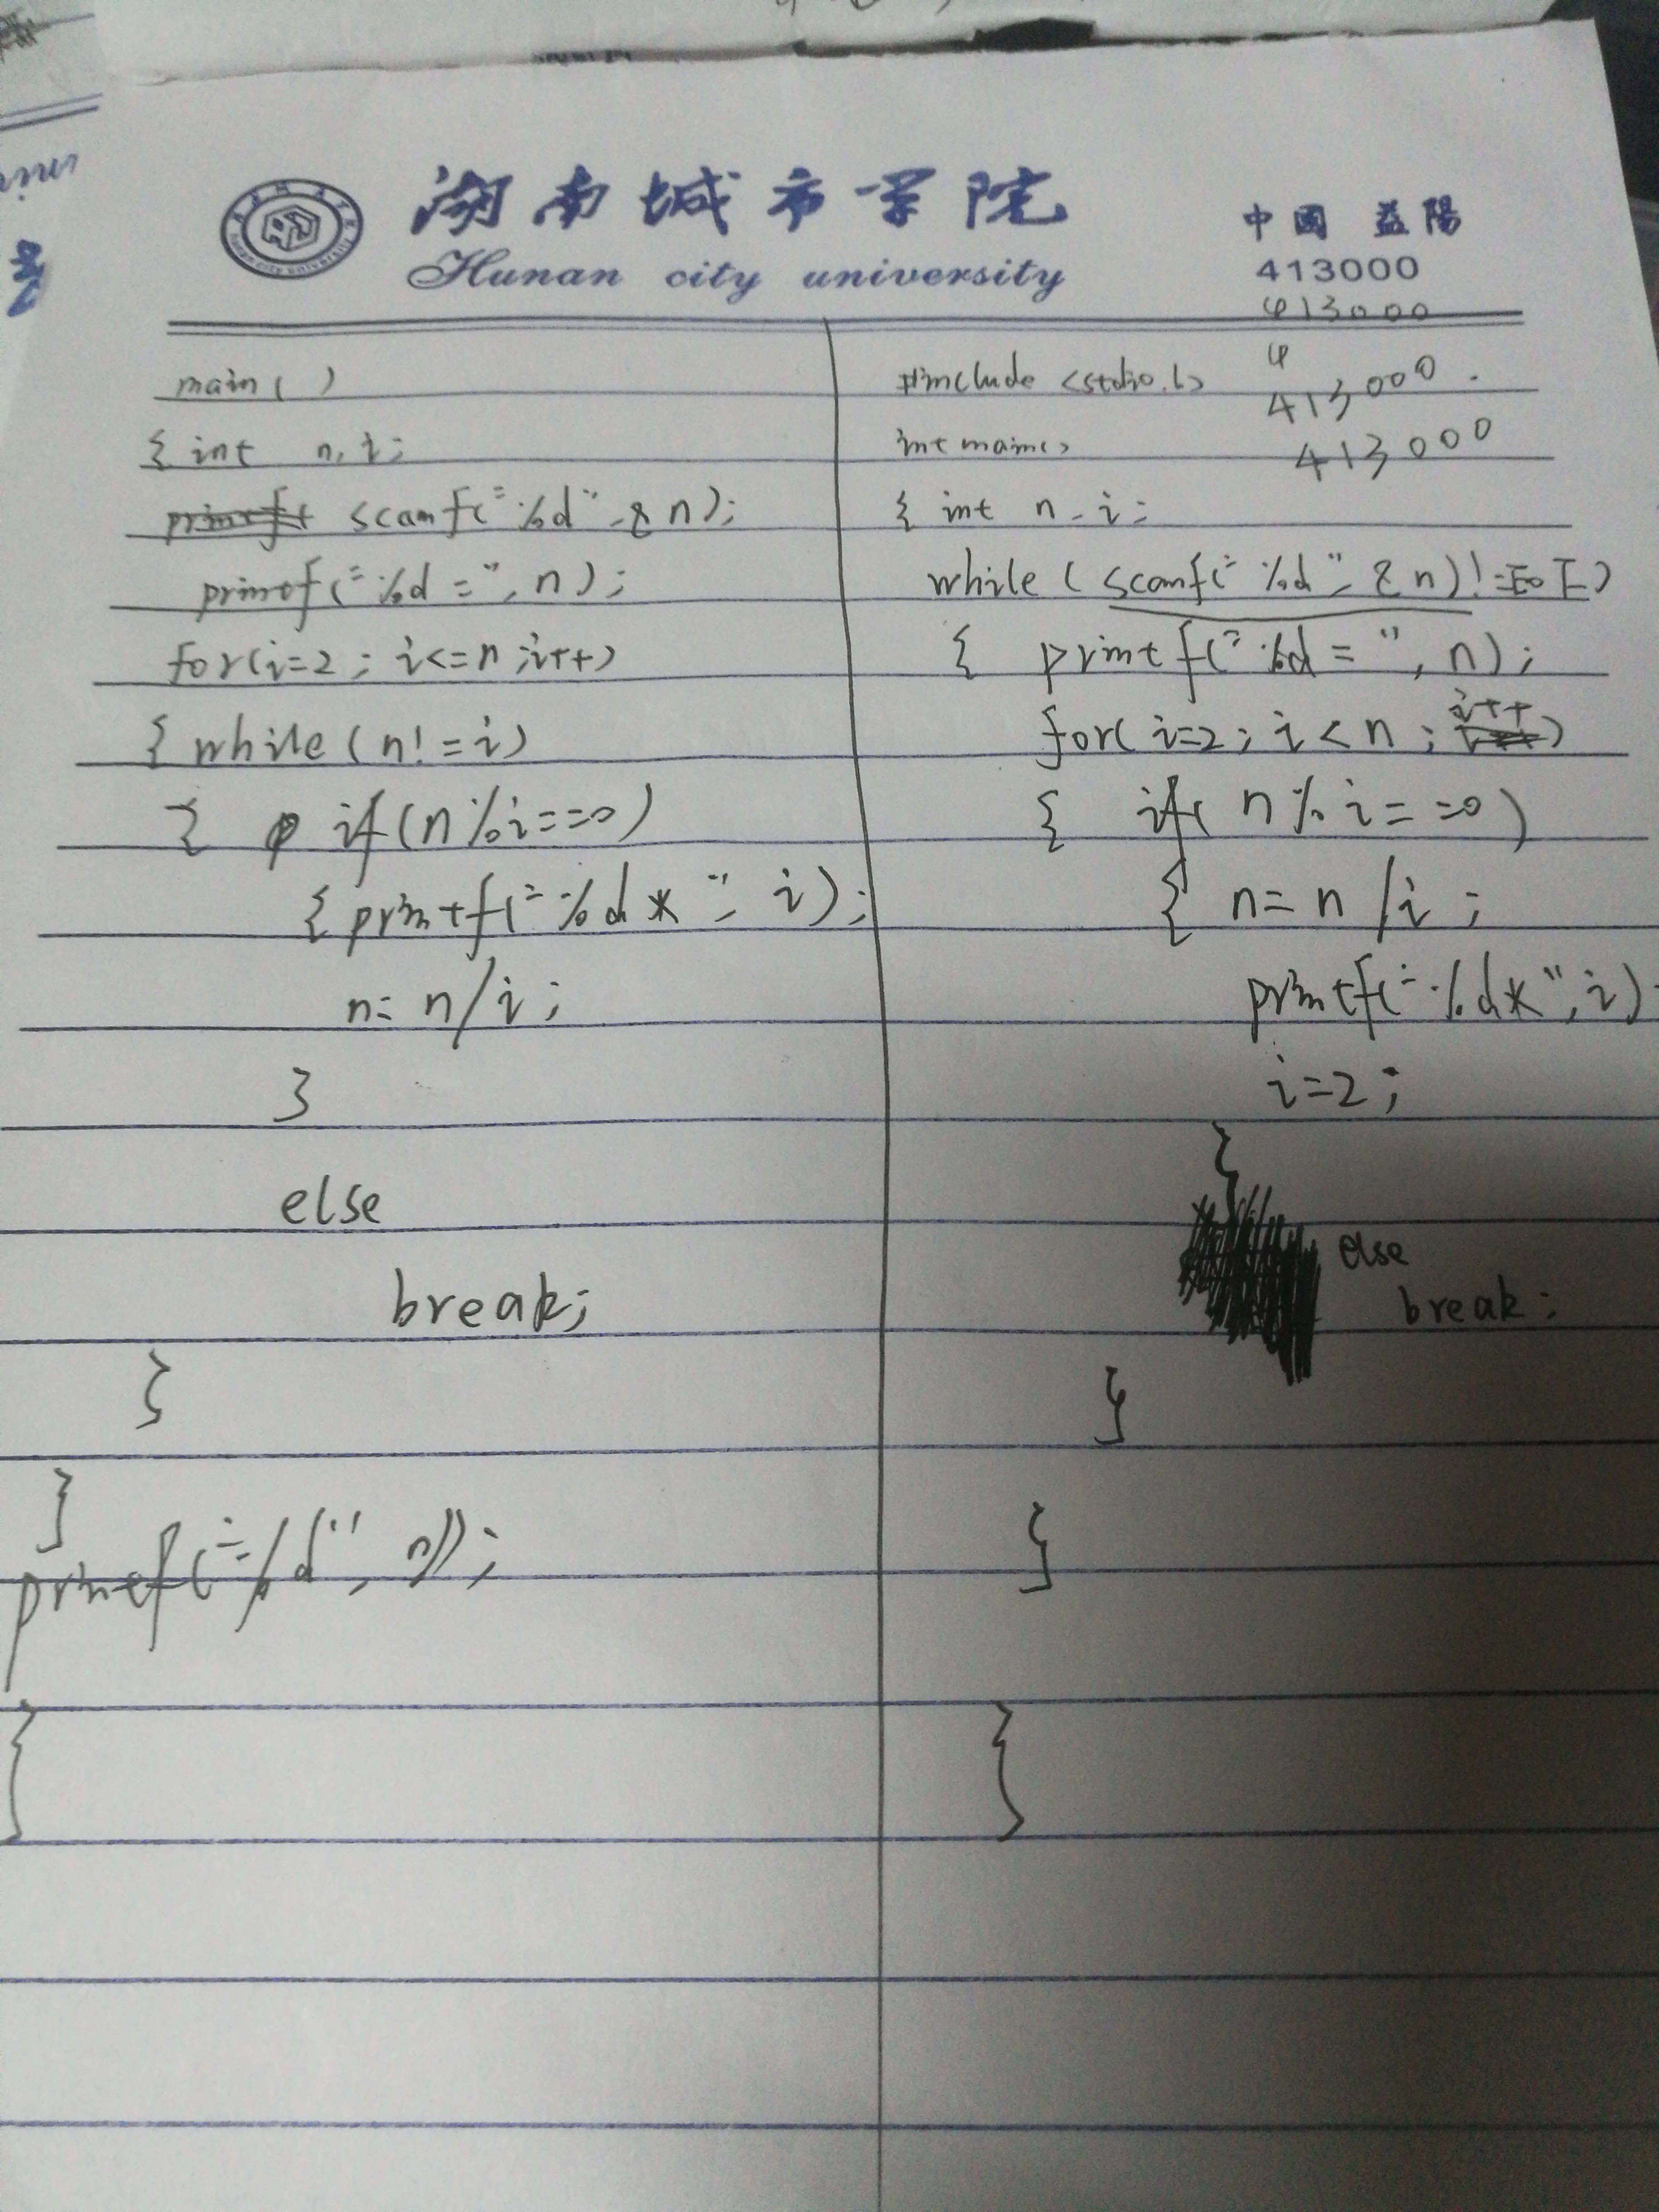 湖南城市学院
Hunan city university
中國 益陽
413000
413000
4
413000.
413000
main( )
{ int n, i;
scanf("%d", &n);
printf("%d=", n);
for(i=2; i<=n; i++)
{ while(n!=i)
{ if(n%i==0)
{ printf("%d*", i);
n= n/i;
}
else
break;
}
}
printf("%d", n));
}
#include <stdio.h>
int main()
{ int n, i;
while( scanf("%d", &n)!=EOF)
{ printf("%d=", n);
for( i=2; i<n; i++)
{ if( n%i==0)
{ n= n/i;
printf("%d*", i)
i=2;
}
else
break;
}
}
}